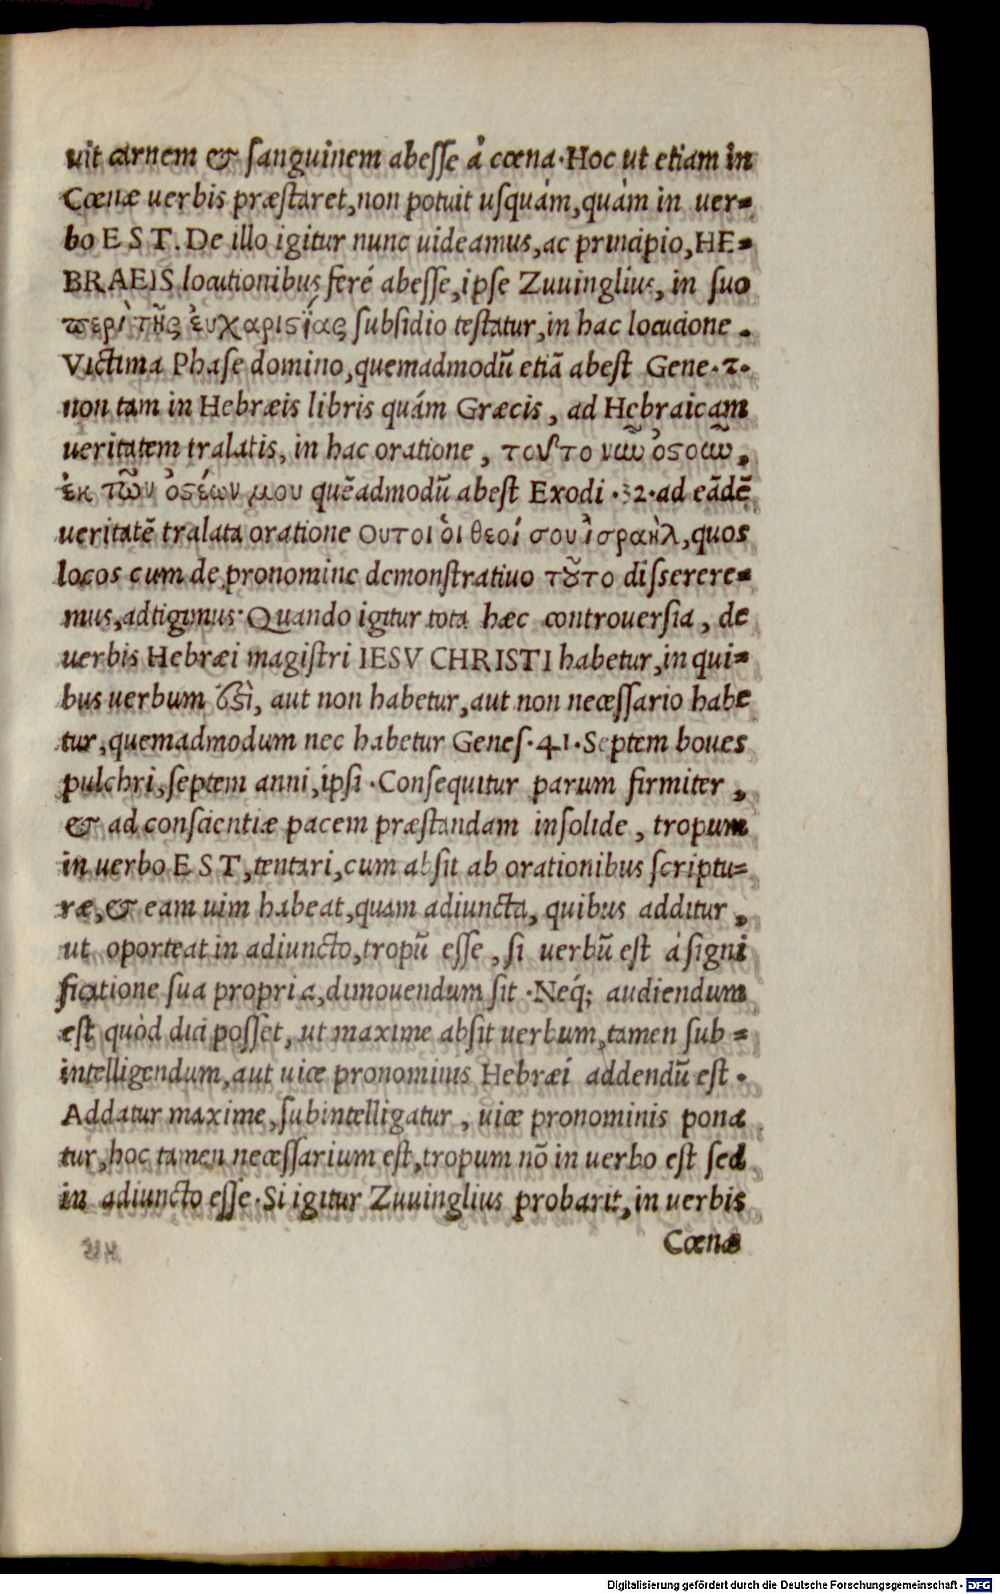 uit carnem & ſanguinem abeſſe á cœna·Hoc ut etiam in
Cœnæ uerbis præſtaret,non potuit uſquám,quám in uer=
bo E S T. De illo igitur nunc uideamus,ac principio,HE=
BRAEIS locutionibus feré abeſſe,ipſe Zuuinglius, in ſuo
περὶ τῆς ἐυχαριϛίας ſubſidio teſtatur,in hac locucione .
Victima Phaſe domino,quemadmodũ etiã abeſt Gene·2·
non tam in Hebræis libris quám Græcis, ad Hebraicam
ueritatem tralatis, in hac oratione, τοῦτο νῶυ ὀϛοῶυ,
ἐκ τῶν ὀϛέων μου quẽadmodũ abeſt Exodi ·32·ad eãdẽ
ueritatẽ tralata oratione Ουτοι ὁι θεοί σου ἰσραὴλ,quos
locos cum de pronomine demonſtratiuo τȣ̃το diſſerere=
mus,adtigimus·Quando igitur tota hæc controuerſia, de
uerbis Hebræi magiſtri IESV CHRISTI habetur,in qui=
bus uerbum ἐϛὶ, aut non habetur,aut non neceſſario habe
tur,quemadmodum nec habetur Geneſ·41·Septem boues
pulchri,ſeptem anni,ipſi ·Conſequitur parum firmiter,
& ad conſcientiæ pacem præſtandam inſolide, tropum
in uerbo E S T,tentari,cum abſit ab orationibus ſcriptu=
ræ,& eam uim habeat,quam adiuncta, quibus additur,
ut oporteat in adiuncto,tropũ eſſe, ſi uerbũ eſt á ſigni
ficatione ſua propria,dimouendum ſit ·Neq́; audiendum
eſt quòd dici poſſet, ut maxime abſit uerbum,tamen ſub =
intelligendum,aut uice pronominis Hebræi addendũ eſt·
Addatur maxime,ſubintelligatur, uice pronominis pona
tur,hoc tamen neceſſarium eſt,tropum nõ in uerbo eſt ſed
in adiuncto eſſe·Si igitur Zuuinglius probarit,in uerbis
Cœnæ
Digitalisierung gefördert durch die Deutsche Forschungsgemeinschaft - DFG